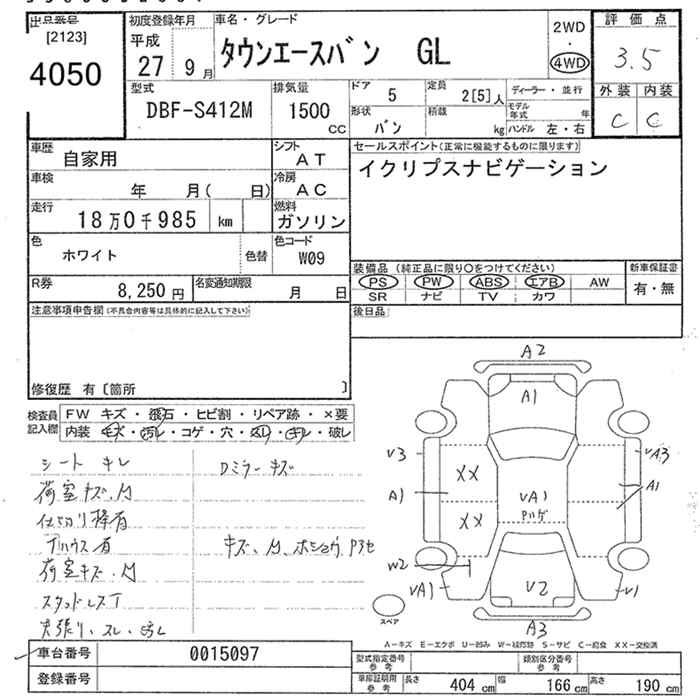 出品番号
[2123]
4050
初度登録年月
平成
27 9月
車名・グレード
タウンエースバン GL
2WD
・
4WD
評価点
3.5
外装 内装
C C
型式
DBF-S412M
排気量
1500
CC
ドア 5
定員 2[5]人
ディーラー・並行
形状 バン
積載 kg
モデル年式 年
ハンドル 左・右
車歴 自家用
シフト AT
車検 年 月( 日)
冷房 AC
走行 18万0千985 km
燃料 ガソリン
色 ホワイト
色替
色コード W09
R券 8,250円
名変通知期限 月 日
セールスポイント(正常に機能するものに限ります)
イクリプスナビゲーション
装備品(純正品に限り○をつけてください)
PS PW ABS エアB AW
SR ナビ TV カワ
新車保証書
有・無
後日品
注意事項申告欄(不具合内容等は具体的に記入して下さい)
修復歴 有〔箇所 〕
検査員記入欄
FW キズ・飛石・ヒビ割・リペア跡・×要
内装 モズ・汚レ・コゲ・穴・スレ・キレ・破レ
シート キレ
Dミラーキズ
荷室キズ.凹
仕切り棒有
荷室キズ.凹
スタッドレスT
天張り.スレ.汚レ
A2
A1
V3
A1
XX
XX
VA1
VA3
A1
W2
VA1
V2
V1
A3
スペア
A=キズ E=エクボ U=凹み W=補修跡 S=サビ C=腐食 XX=交換済
車台番号 0015097
登録番号
型式指定番号 参考
類別区分番号 参考
車庫証明用 参考
長さ 404cm 幅 166cm 高さ 190cm